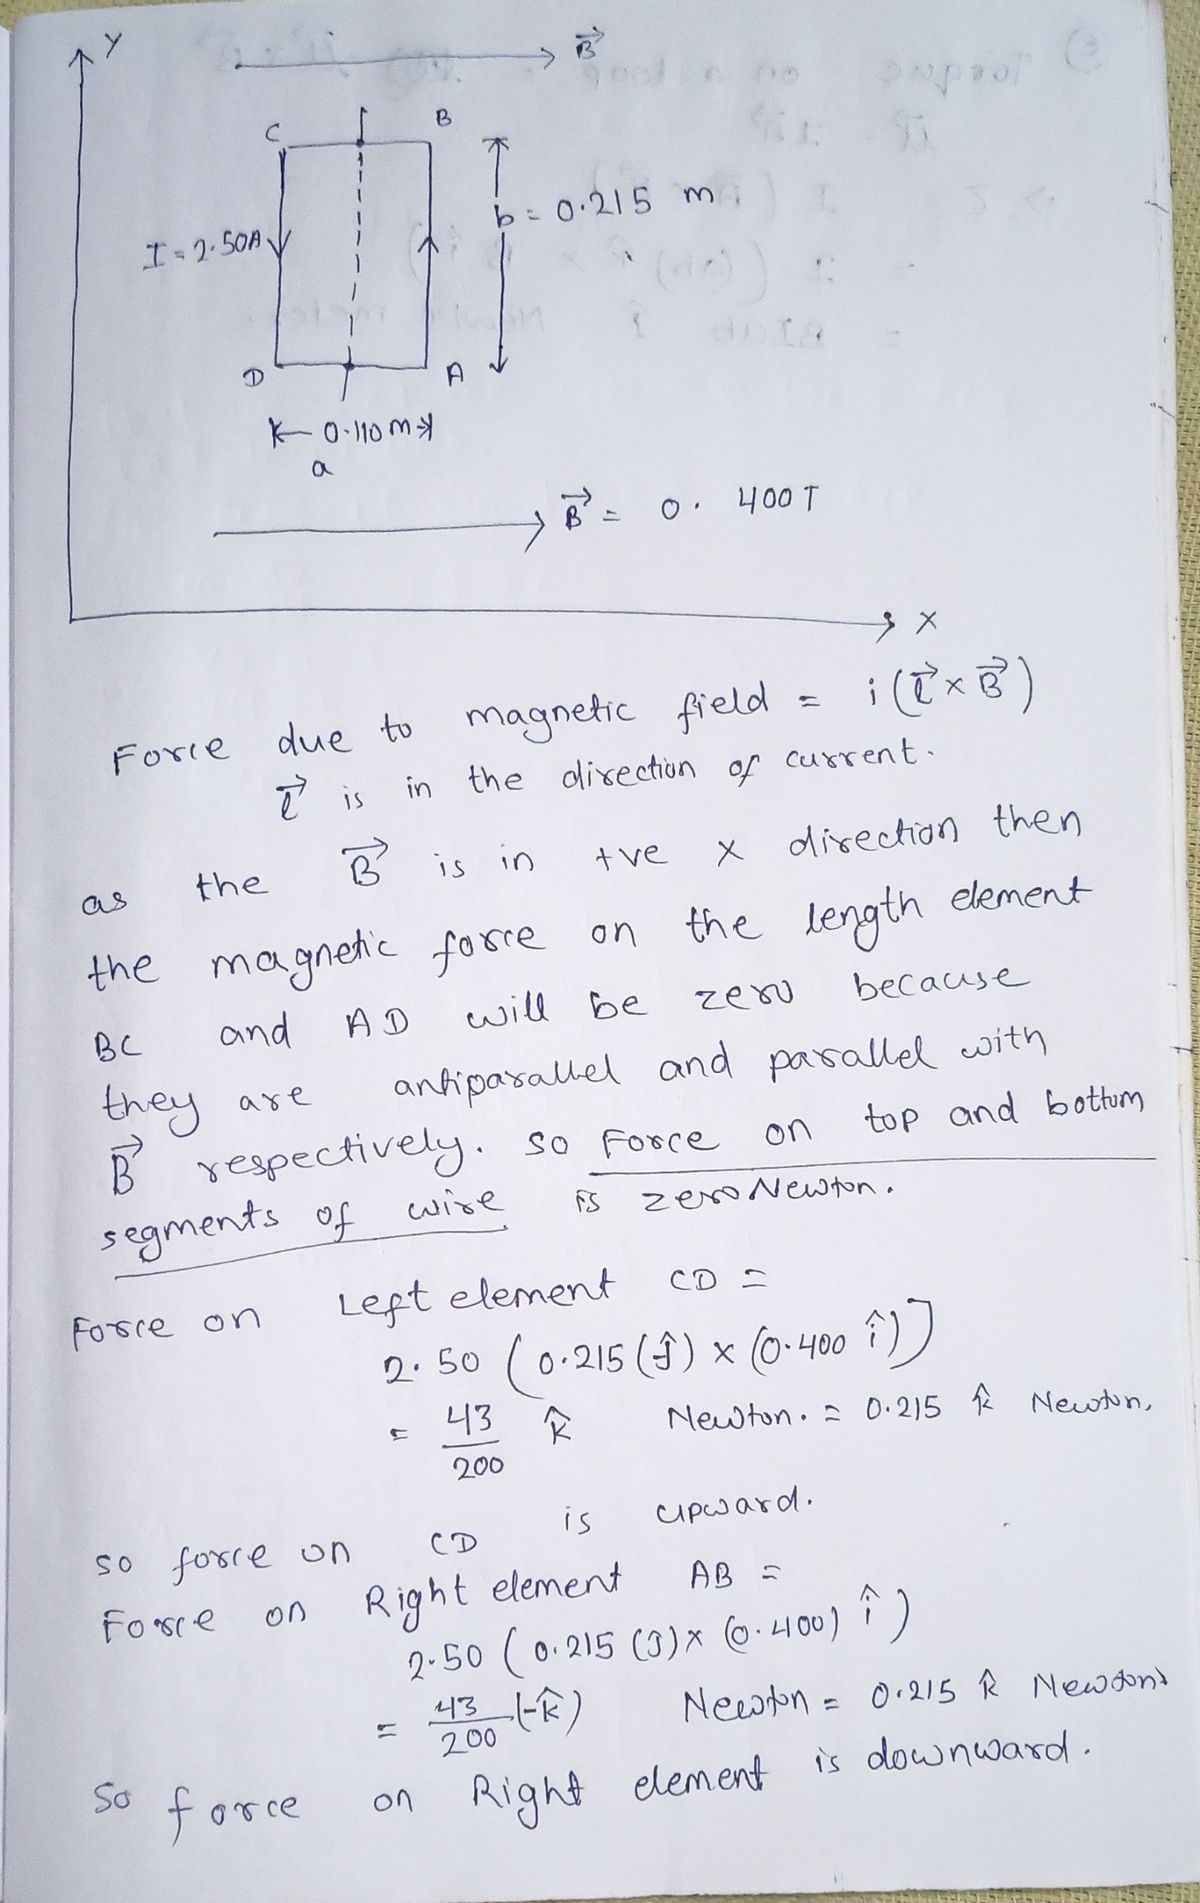 Y
B⃗
C
B
b = 0.215 m
I = 2.50A
D
A
0.110m
a
B⃗ = 0. 400 T
X
Force due to magnetic field = i (l⃗ × B⃗)
l⃗ is in the direction of current.
as the B⃗ is in +ve x direction then
the magnetic force on the length element
BC and AD will be zero because
they are antiparallel and parallel with
B⃗ respectively. so Force on top and bottom
segments of wire is zero Newton.
Force on Left element CD =
2.50 (0.215 (ĵ) × (0.400 î)]
= 43/200 k̂ Newton. = 0.215 k̂ Newton.
so force on CD is upward.
Force on Right element AB =
2.50 (0.215 (J) × (0.400) î)
= 43/200 (-k̂) Newton = 0.215 k̂ Newtons
So force on Right element is downward.